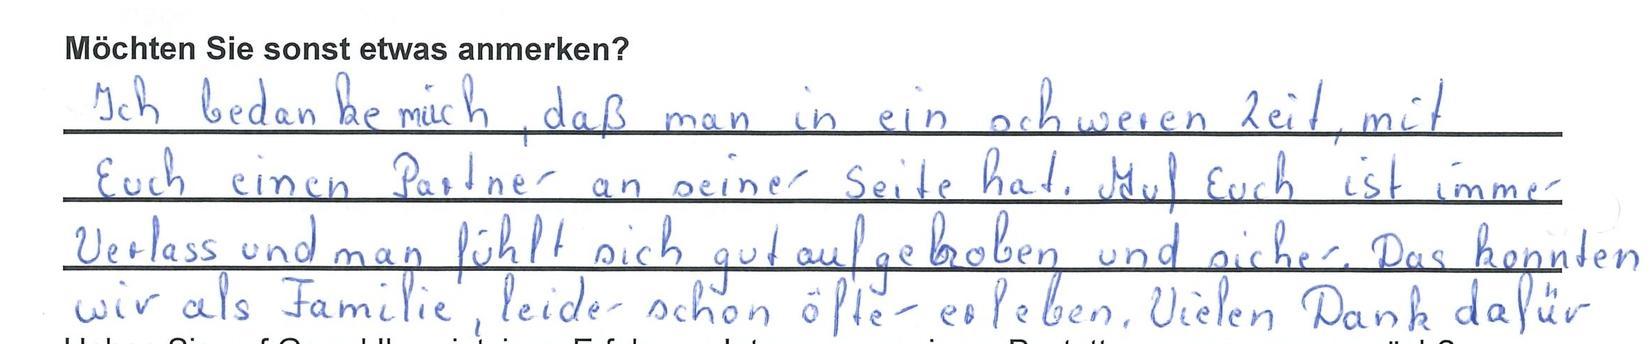 Möchten Sie sonst etwas anmerken?
Ich bedanke mich, daß man in ein schweren Zeit, mit
Euch einen Partner an seiner Seite hat. Auf Euch ist immer
Verlass und man fühlt sich gut aufgehoben und sicher. Das konnten
wir als Familie, leider schon öfter erleben. Vielen Dank dafür